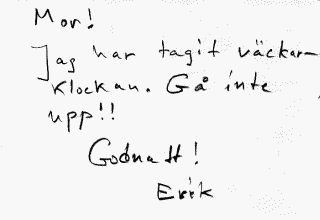 Mor!
Jag har tagit väckar-
klockan. Gå inte
upp!!
Godnatt!
Erik